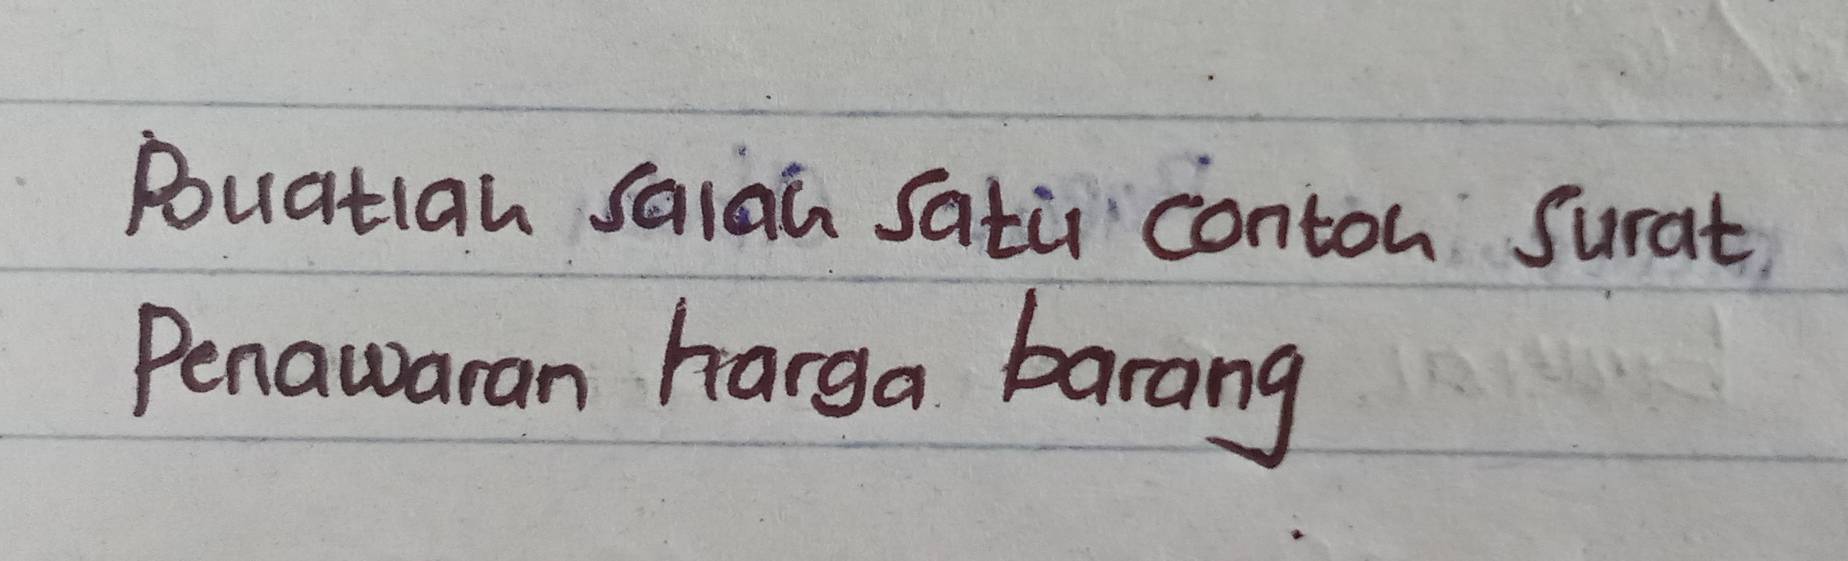 Buatlah salah satu contoh surat
Penawaran harga barang